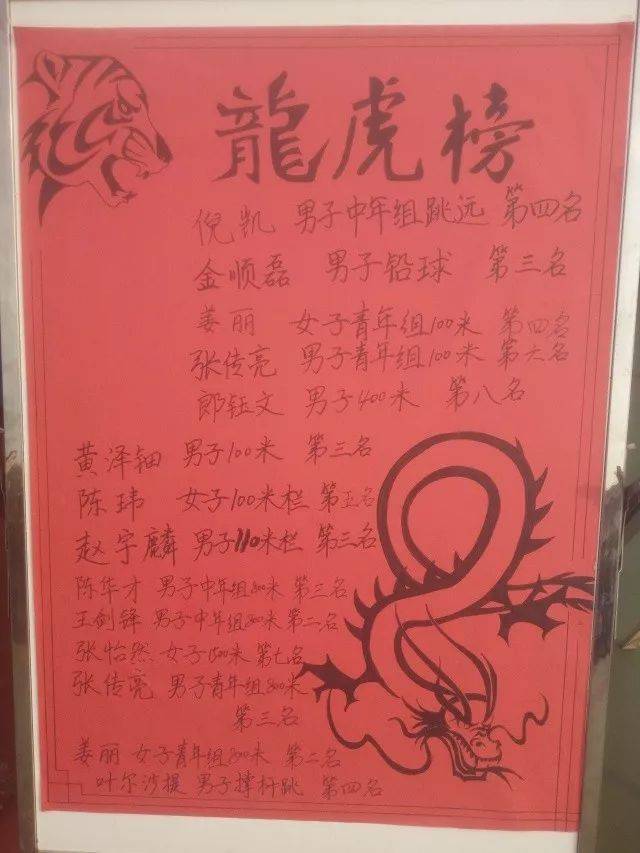 龍虎榜
倪凯 男子中年组跳远 第四名
金顺磊 男子铅球 第三名
姜丽 女子青年组100米 第四名
张传亮 男子青年组100米 第六名
郎钰文 男子400米 第八名
黄泽钿 男子100米 第三名
陈玮 女子100米栏 第五名
赵宇麟 男子110米栏 第三名
陈华才 男子中年组800米 第三名
王剑锋 男子中年组800米 第二名
张怡然 女子1500米 第七名
张传亮 男子青年组800米
第三名
姜丽 女子青年组800米 第二名
叶尔沙提 男子撑杆跳 第四名